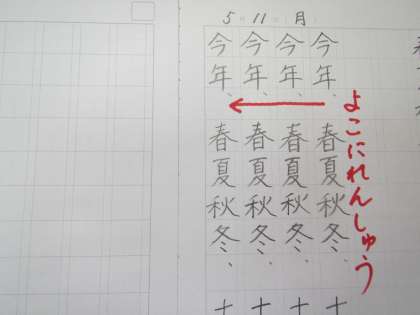 5 11 月
よこにれんしゅう
今年、春夏秋冬、
今年、春夏秋冬、
今年、春夏秋冬、
今年、春夏秋冬、